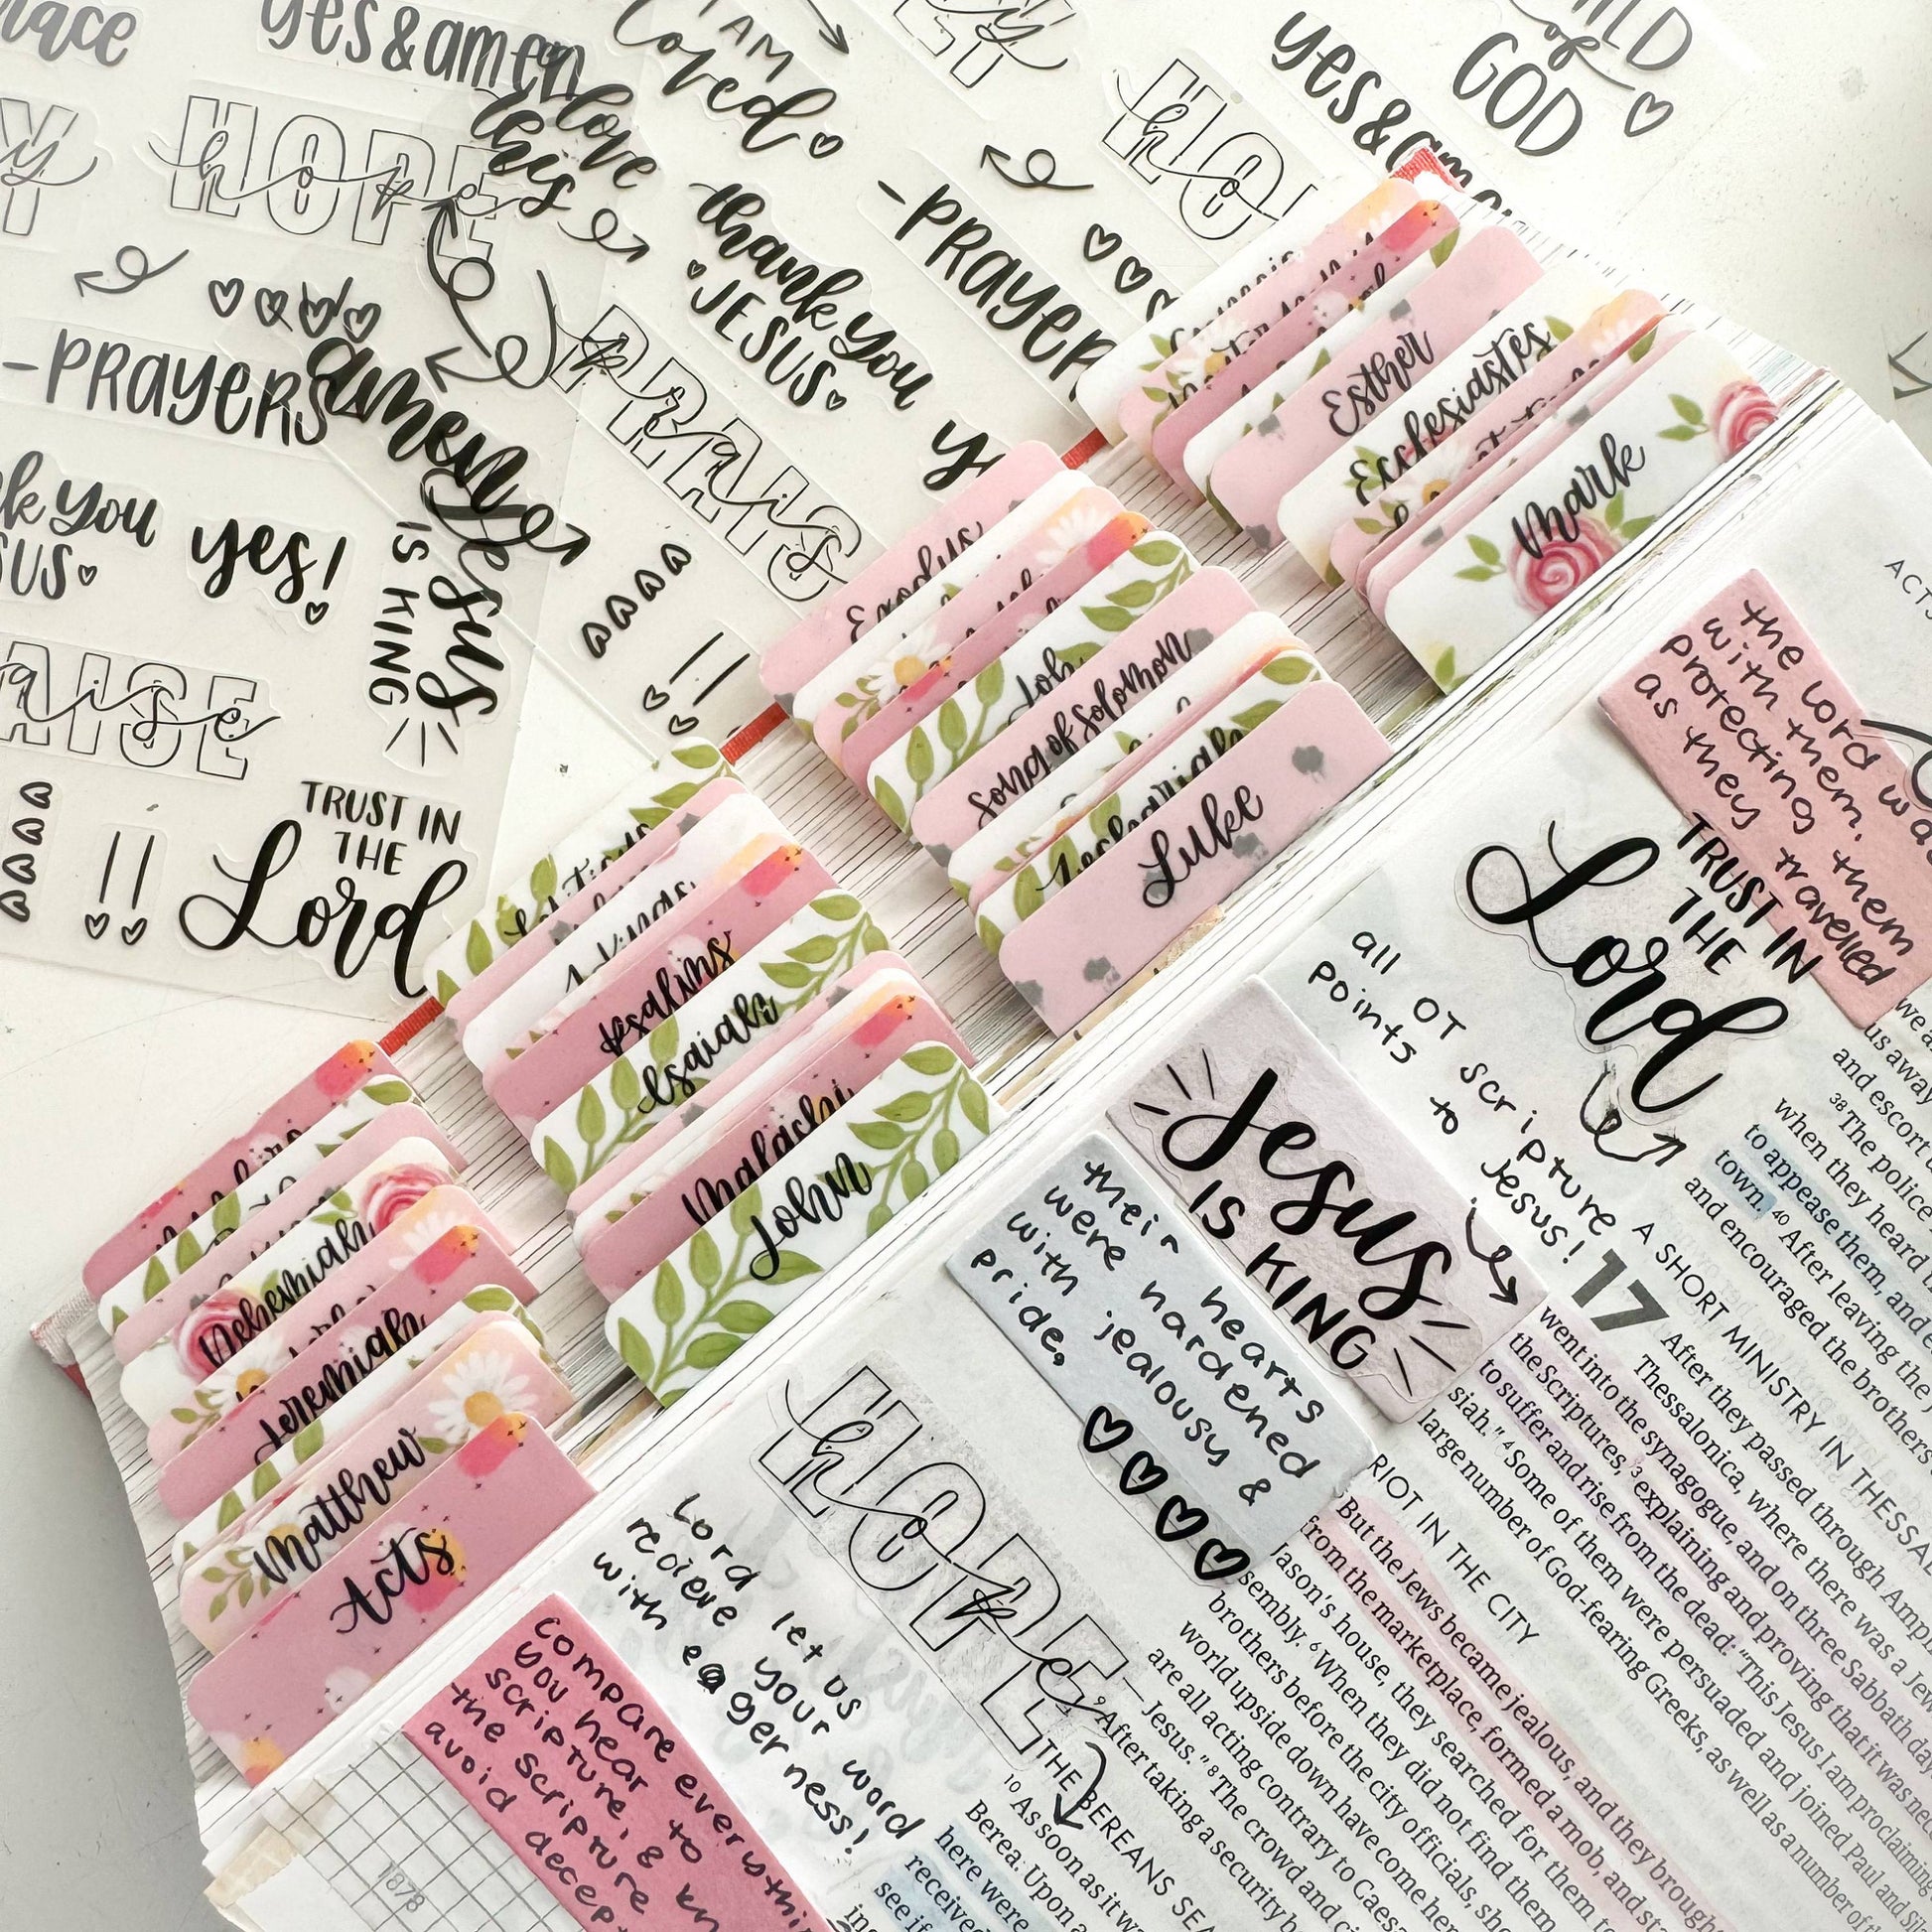 yes & amen
love
this
HOPE
hope
-PRAYERS
amen
yes!
Jesus
IS KING
TRUST IN
THE
Lord
I AM
loved
thank you
JESUS
-PRAYER
yes &
GOD
Esther
Ecclesiastes
Mark
Exodus
Job
Song of Solomon
Zechariah
Luke
Psalms
Isaiah
Malachi
John
Nehemiah
Jeremiah
Matthew
Acts
the Lord was
with them,
protecting them
as they travelled
TRUST IN
THE
Lord
all OT scripture
points to Jesus!
Jesus
IS KING
their hearts
were hardened
with jealousy &
pride.
HOPE
hope
Lord let us
recieve your word
with eagerness!
compare everythin
you hear to
scripture, & kn
the scripture
avoid decept
1878
and escort
38 The police
when they heard
to appease them, and
town. 40 After leaving the
and encouraged the brothers
17
A SHORT MINISTRY IN THESSA
After they passed through Amph
Thessalonica, where there was a Jew
went into the synagogue, and on three Sabbath day
the Scriptures, 3 explaining and proving that it was nec
to suffer and rise from the dead: "This Jesus I am proclaiming
siah." 4 Some of them were persuaded and joined Paul and Si
large number of God-fearing Greeks, as well as a number of
RIOT IN THE CITY
5 But the Jews became jealous, and they brough
from the marketplace, formed a mob, and st
Jason's house, they searched for them
sembly. 6 When they did not find them
brothers before the city officials, sh
world upside down have come her
are all acting contrary to Caesa
Jesus." 8 The crowd and ci
9 After taking a security b
THE BEREANS SEA
10 As soon as it w
Berea. Upon a
here were
received
see if